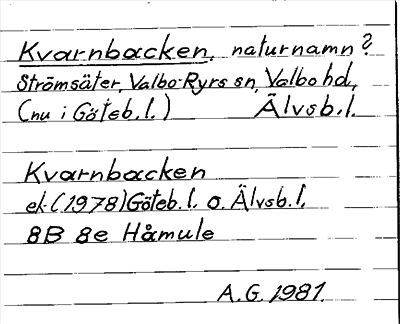 Kvarnbacken, naturnamn?
Strömsäter, Valbo-Ryrs sn, Valbo hd,
(nu i Göteb. l.) Älvsb. l.
Kvarnbacken
ek (1978) Göteb. l. o. Älvsb. l.
8B 8e Håmule
A.G. 1981.